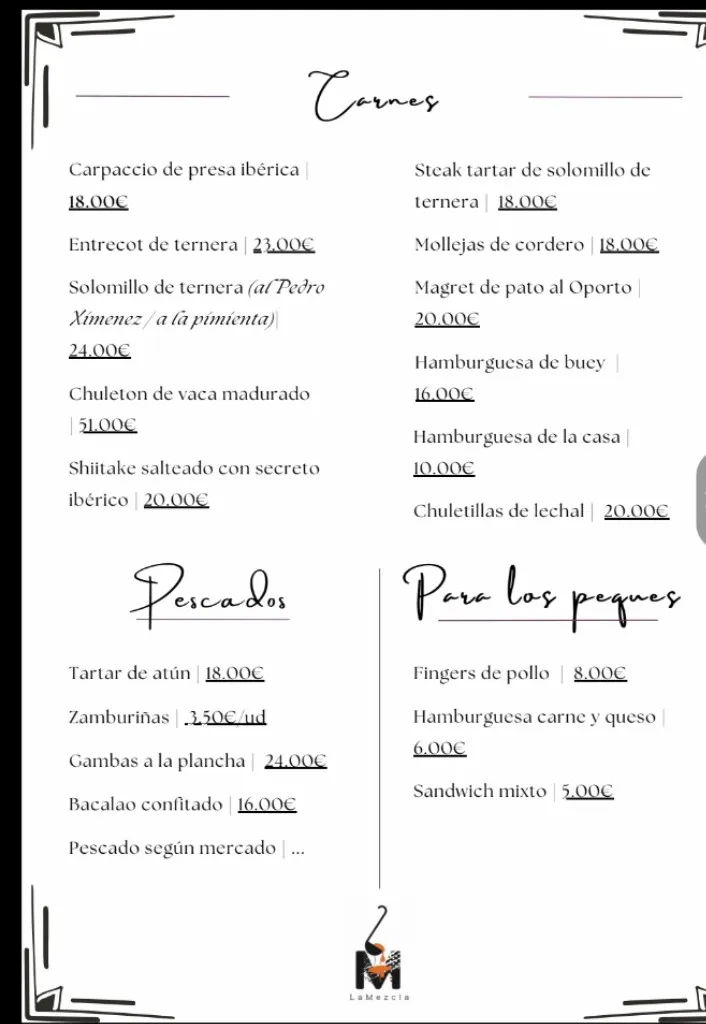 Carnes
Carpaccio de presa ibérica |
18.00€
Entrecot de ternera | 23.00€
Solomillo de ternera (al Pedro
Ximenez / a la pimienta)|
24.00€
Chuleton de vaca madurado
| 51.00€
Shiitake salteado con secreto
ibérico | 20.00€
Steak tartar de solomillo de
ternera | 18.00€
Mollejas de cordero | 18.00€
Magret de pato al Oporto |
20.00€
Hamburguesa de buey |
16.00€
Hamburguesa de la casa |
10.00€
Chuletillas de lechal | 20.00€
Pescados
Tartar de atún | 18.00€
Zamburiñas | 3.50€/ud
Gambas a la plancha | 24.00€
Bacalao confitado | 16.00€
Pescado según mercado | ...
Para los peques
Fingers de pollo | 8.00€
Hamburguesa carne y queso |
6.00€
Sandwich mixto | 5.00€
M
LaMezcla